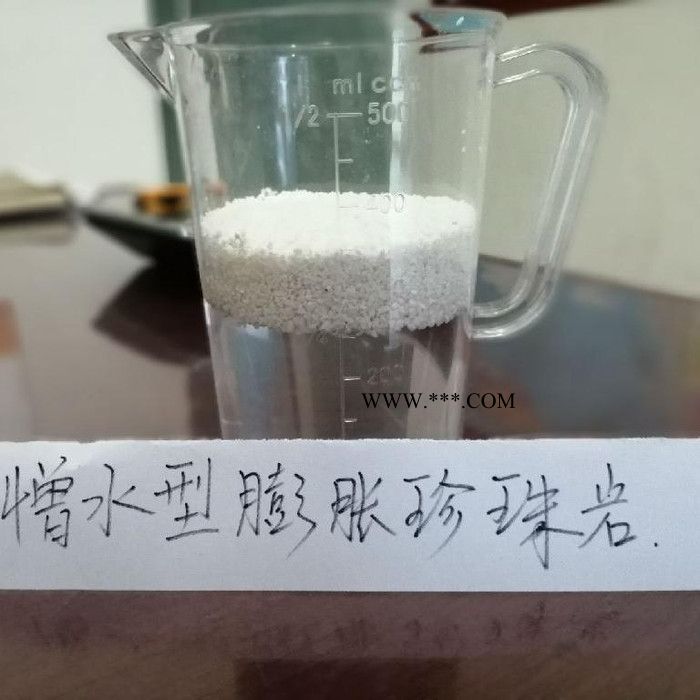 ml cc
1/2 500
400
200
WWW.***.COM
憎水型膨胀珍珠岩.